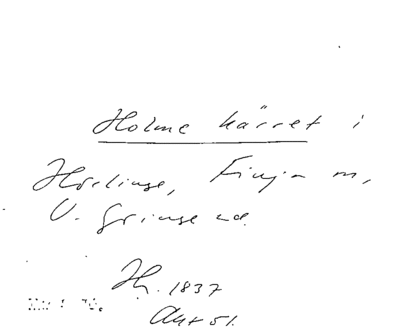 Holmekärret i
Hörlinge, Finja sn,
V. Göinge hd.
Hh. 1837
Akt 51.